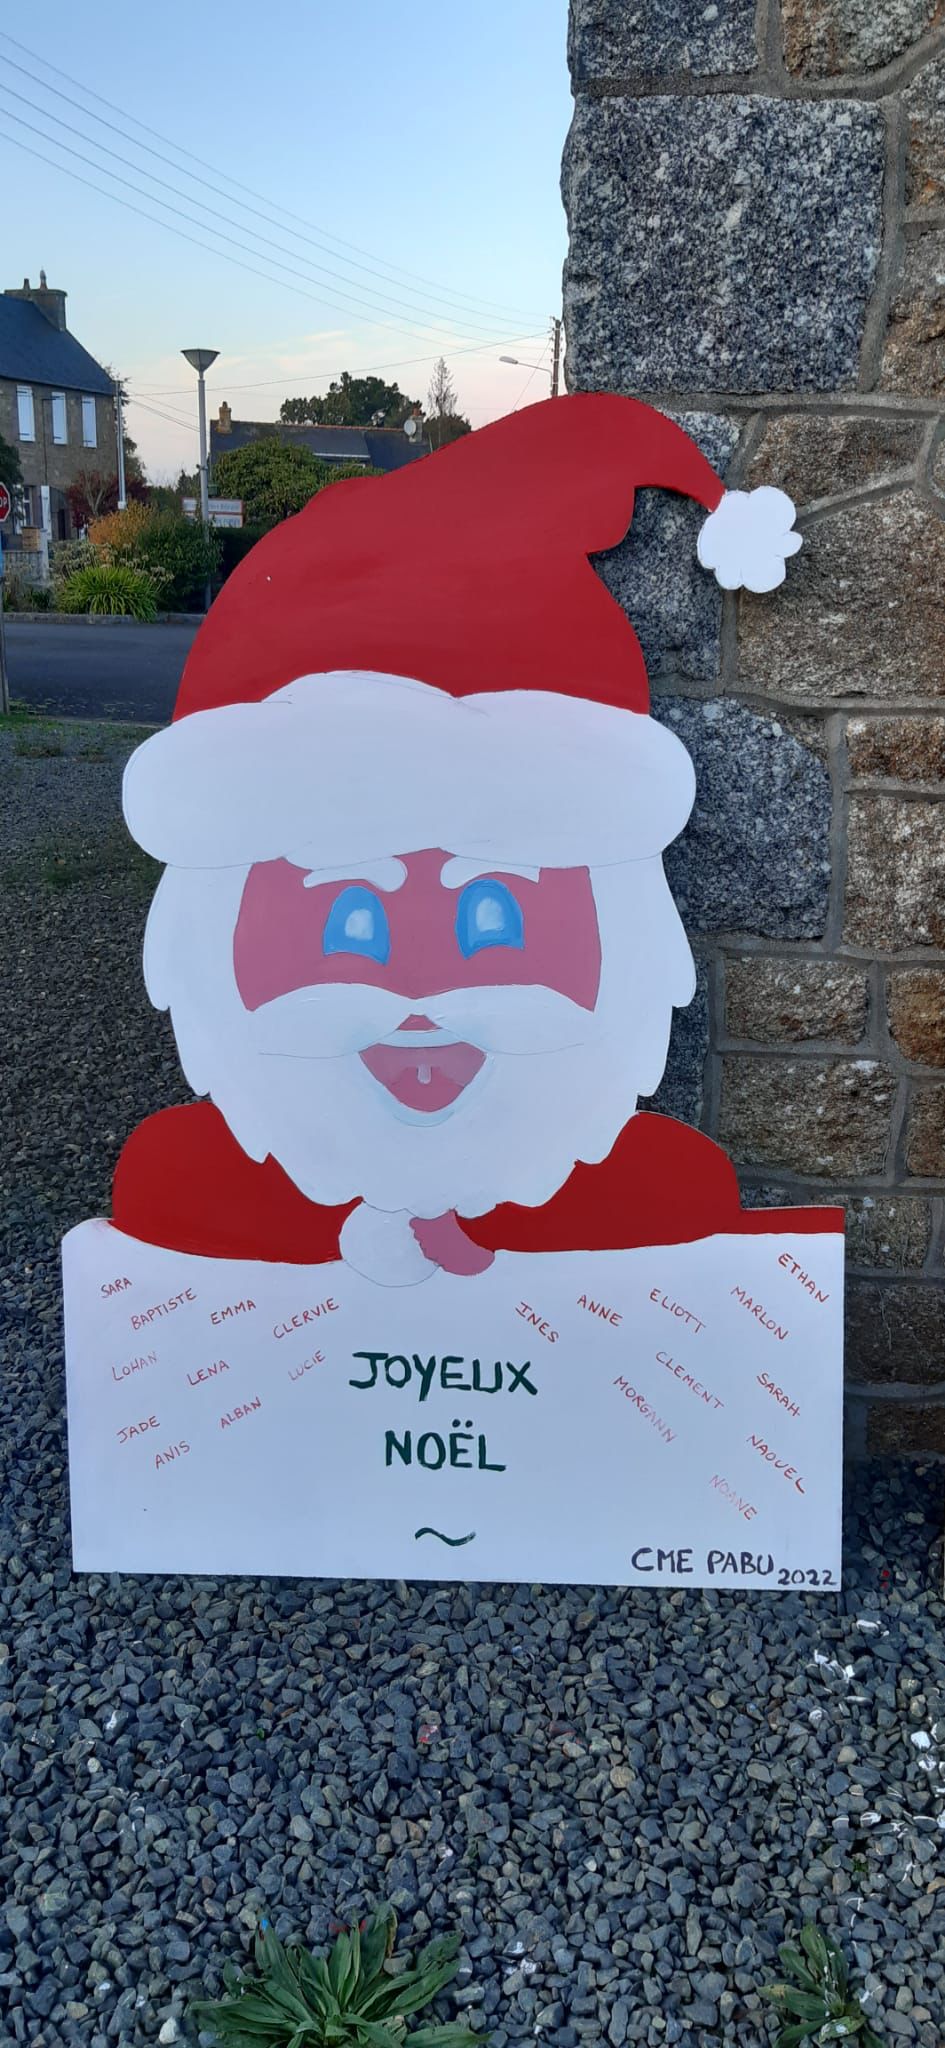 SARA
BAPTISTE
EMMA
CLERVIE
LOHAN
LENA
LUCIE
JADE
ANIS
ALBAN
JOYEUX
NOËL
~
INES
ANNE
ELIOTT
MARLON
ETHAN
MORGANN
CLEMENT
SARAH
NAOUEL
NOANE
CME PABU 2022
OP